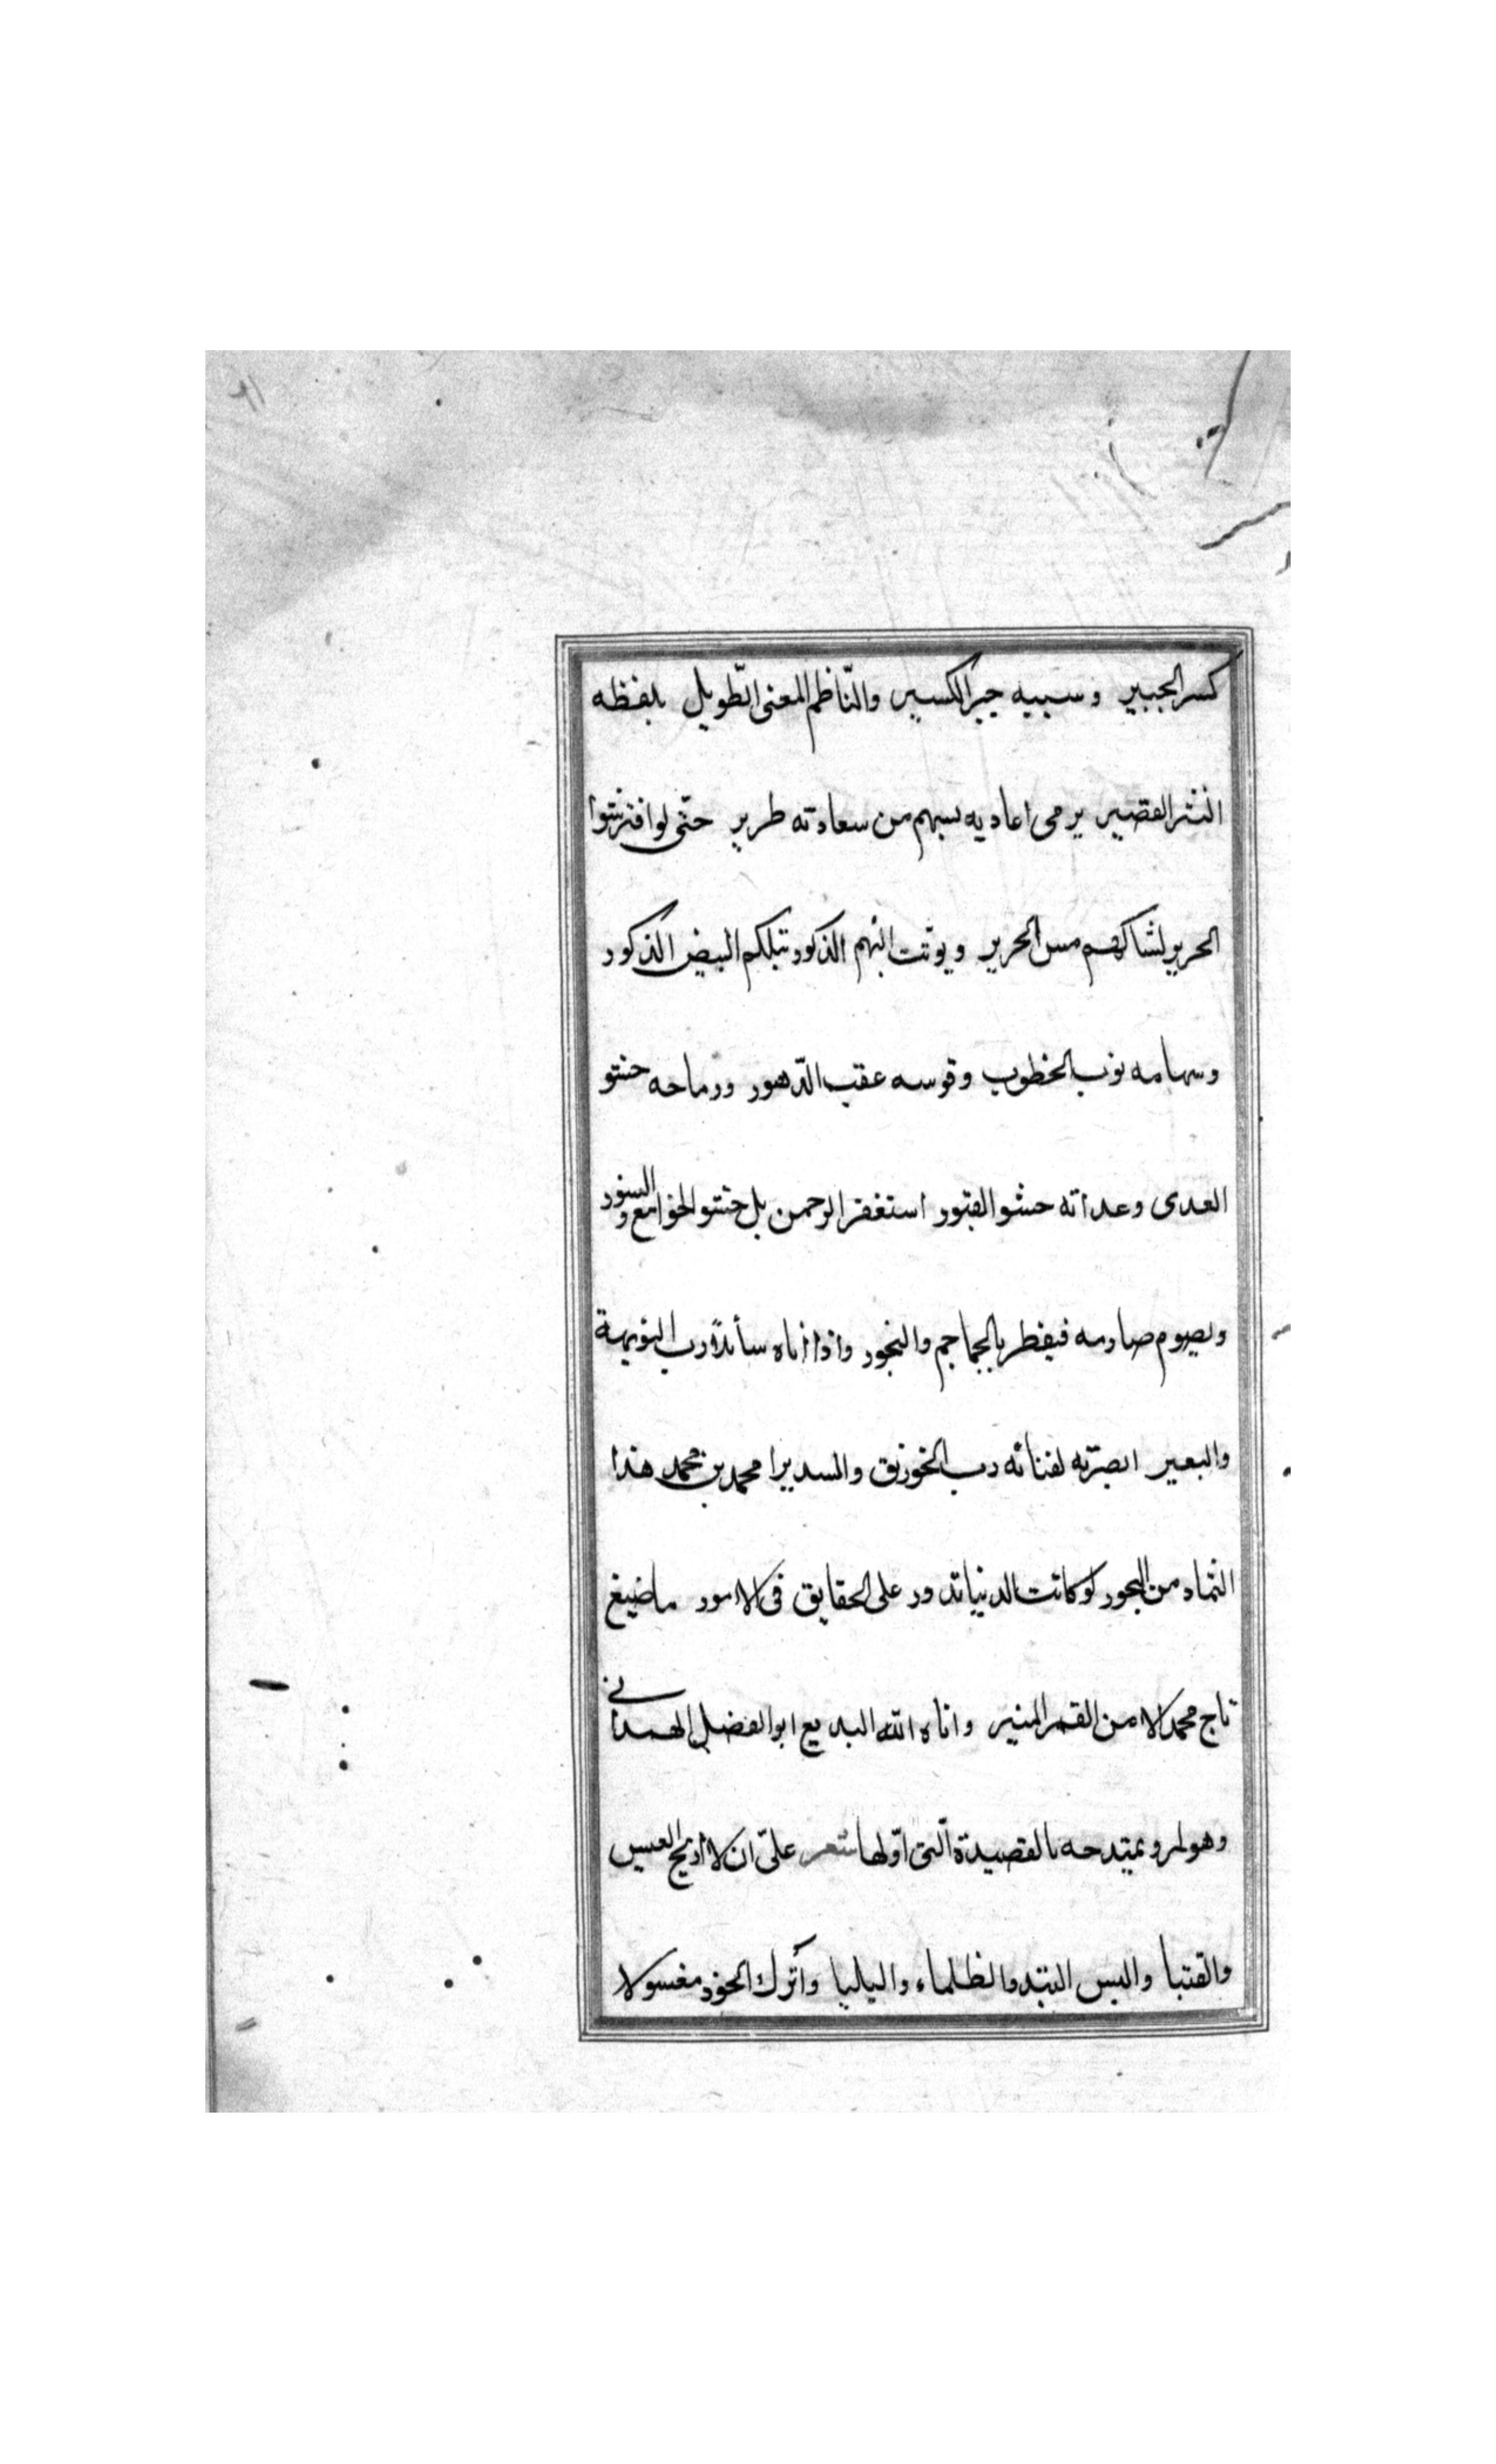 كسر الجبير وسيبه جبر الكسير والنّاظم المعنى الطّويل بلفظه
النثر القصير يرمى اعاديه بسهم من سعادته طرير حتّى لو افترشوا
الحرير لشاكهم مس الحرير ويونّث انهم الذكور تبلكم البيض الذكور
وسهامه نوب الخطوب وقوسه عقب الدّهور ورماحه حشو
العدى وعداته حشو القبور استغفر الرحمن بل حشو الخوامع والنسور
ويصوم صارمه فيفطر بالجماجم والنحور واذا اتاه سائلا رب الشويهة
والبعير ابصرته لفنائه رب الخورنق والسدير امحمد بن محمد هذا
الثماد من البحور لو كانت الدنيا تدور على الحقايق فى الامور ما ضيغ
تاج محمد الا من القمر المنير واتاه الله البديع ابو الفضل الهمدانى
وهو بمرو يمتدحه بالقصيدة الّتى اوّلها شعر علىّ ان لا اريح العيس
والقتبا والبس البيد والظلماء واليلبا وأترك الخود معسولا